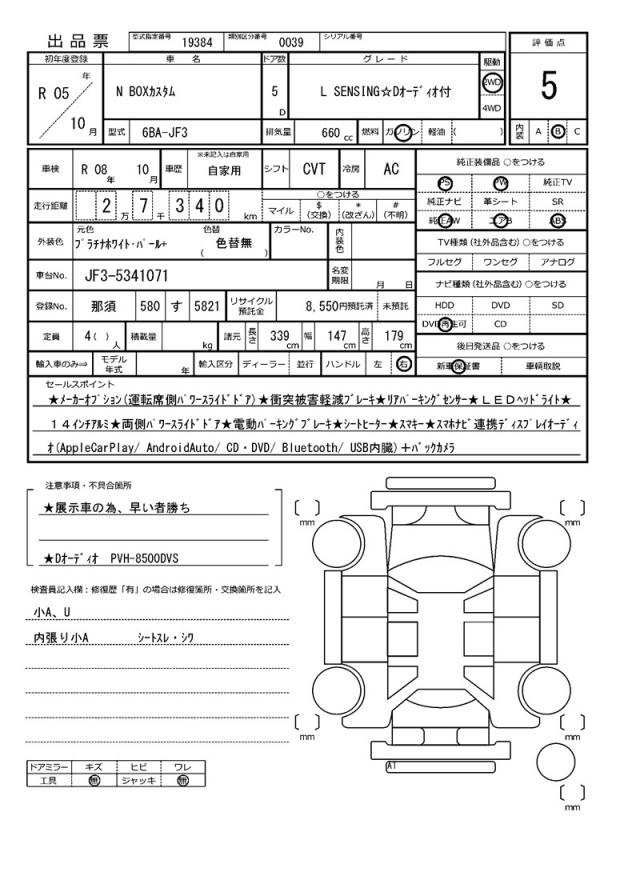 出品票 型式指定番号 19384 類別区分番号 0039 シリアル番号
初年度登録 車名 ドア数 グレード 駆動 評価点
R 05 年 10 月 N BOXカスタム 5 D L SENSING☆Dオーディオ付 2WD 4WD 5
型式 6BA-JF3 排気量 660 cc 燃料 ガソリン 軽油 ( ) 内装 A B C
車検 R 08 年 10 月 車歴 ※未記入は自家用 自家用 シフト CVT 冷房 AC
走行距離 2 万 7 千 3 4 0 km ○をつける マイル $ (交換) * (改ざん) # (不明)
外装色 元色 プラチナホワイト・パール+ 色替 ( 色替無 ) カラーNo. 内装色
車台No. JF3-5341071 名変期限 月 日
登録No. 那須 580 す 5821 リサイクル預託金 8,550円預託済 未預託
定員 4( ) 人 積載量 kg 諸元 長さ 339 cm 幅 147 cm 高さ 179 cm
輸入車のみ⇨ モデル年式 年 輸入区分 ディーラー 並行 ハンドル 左 右
純正装備品 ○をつける
PS PW 純正TV
純正ナビ 革シート SR
純正AW エアB ABS
TV種類 (社外品含む) ○をつける
フルセグ ワンセグ アナログ
ナビ種類 (社外品含む) ○をつける
HDD DVD SD
DVD再生可 CD
後日発送品 ○をつける
新車保証書 車輌取説
セールスポイント
★メーカーオプション(運転席側パワースライドドア)★衝突被害軽減ブレーキ★リアパーキングセンサー★LEDヘッドライト★
14インチアルミ★両側パワースライドドア★電動パーキングブレーキ★シートヒーター★スマキー★スマホナビ連携ディスプレイオーディ
オ(AppleCarPlay/ AndroidAuto/ CD・DVD/ Bluetooth/ USB内臓)+バックカメラ
注意事項・不具合箇所
★展示車の為、早い者勝ち
★Dオーディオ PVH-8500DVS
検査員記入欄：修復歴「有」の場合は修復箇所・交換箇所を記入
小A、U
内張り小A シートスレ・シワ
ドアミラー キズ ヒビ ワレ
工具 無 ジャッキ 無
mm
mm
mm
mm
A1
mm